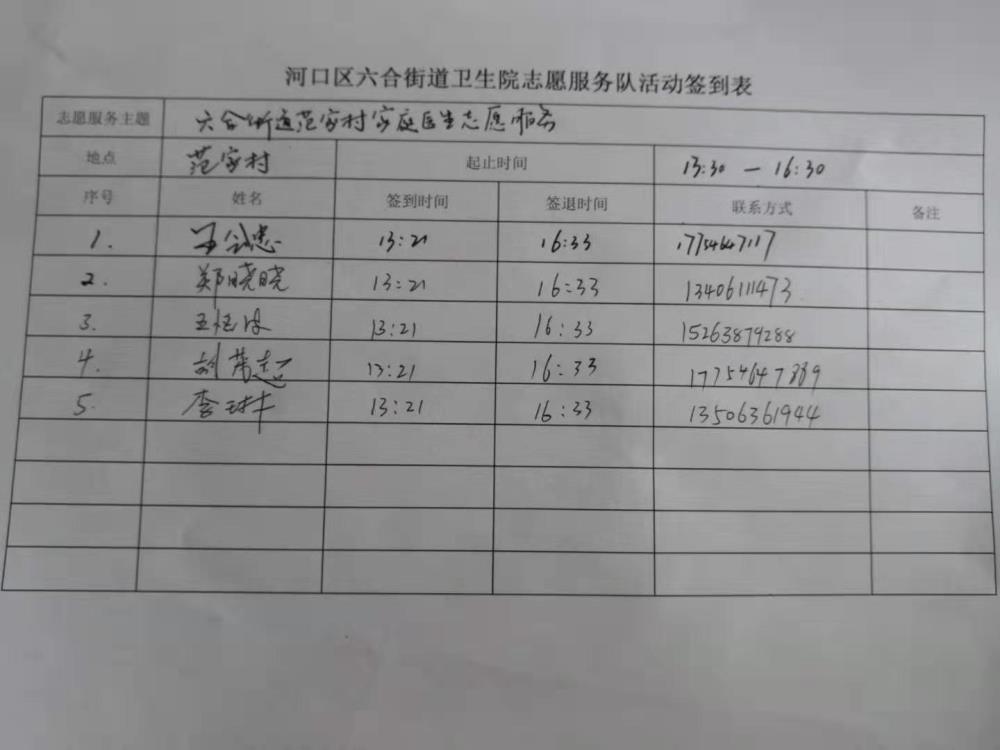 河口区六合街道卫生院志愿服务队活动签到表
志愿服务主题 六合街道范家村家庭医生志愿服务
地点 范家村 起止时间 13:30 — 16:30
序号 姓名 签到时间 签退时间 联系方式 备注
1. 13:21 16:33 17754647117
2. 郑晓晓 13:21 16:33 13406111473
3. 13:21 16:33 15263879288
4. 胡茂起 13:21 16:33 17754647889
5. 13:21 16:33 13506361944